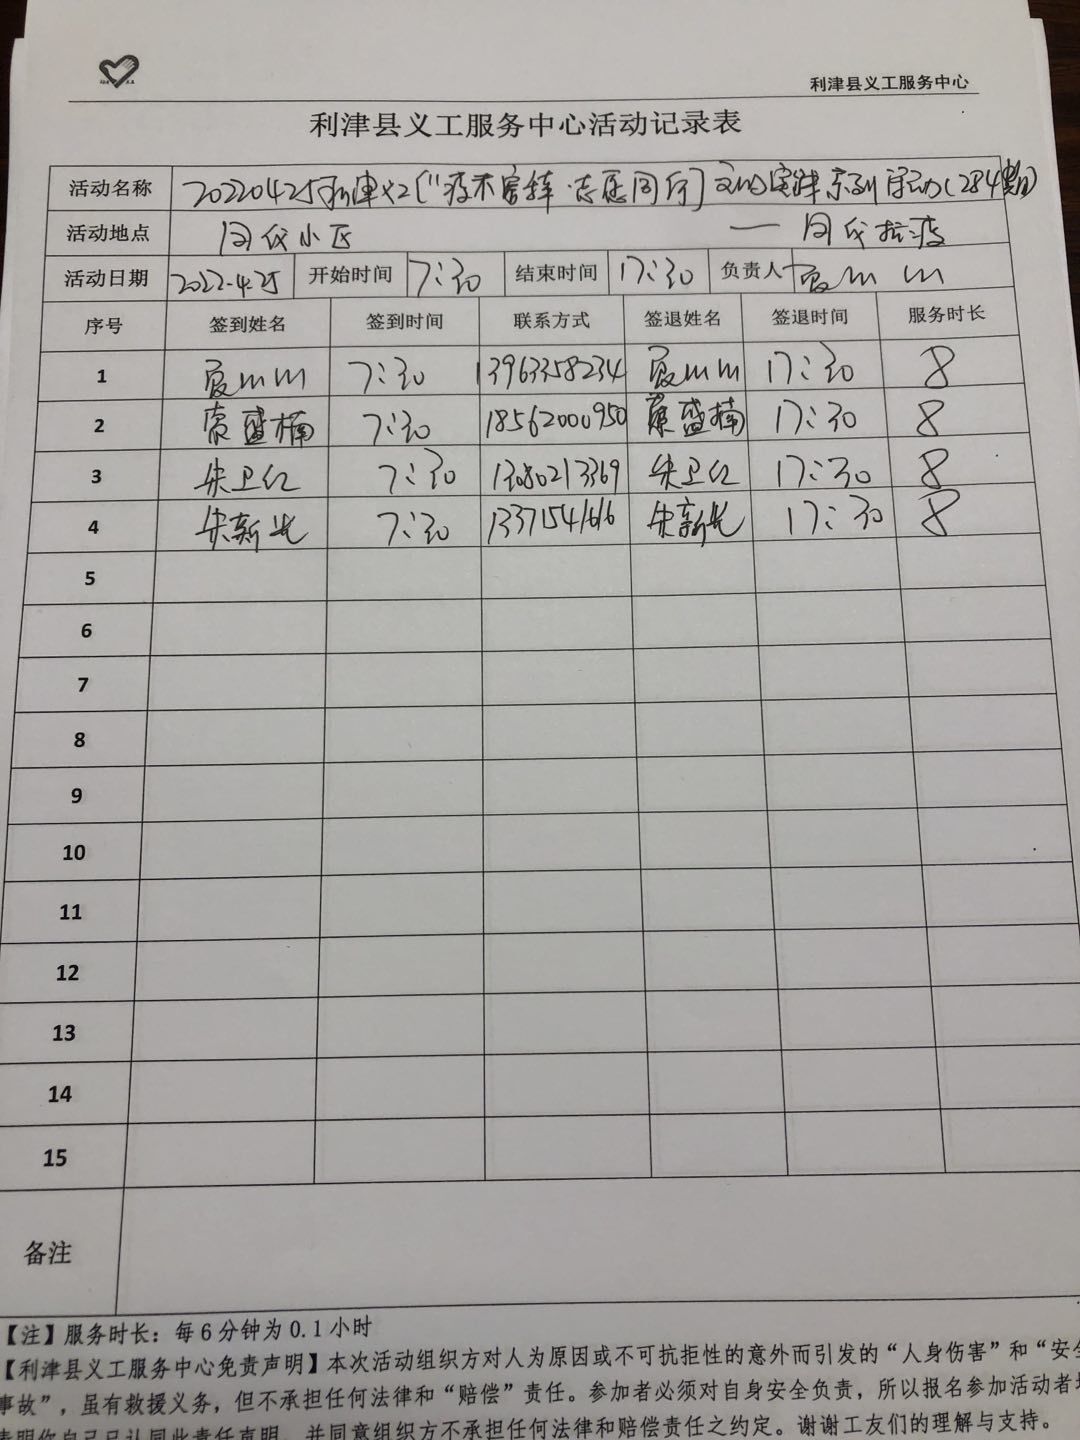 利津县义工服务中心
利津县义工服务中心活动记录表
活动名称 20220425利津义工["疫不容辞·志愿同行]文明实践系列活动(284期)
活动地点 同代小区 — 同代抗疫
活动日期 2022.4.25 开始时间 7:30 结束时间 17:30 负责人
序号 签到姓名 签到时间 联系方式 签退姓名 签退时间 服务时长
1 7:30 13963358234 17:30 8
2 盛楠 7:30 18562000950 盛楠 17:30 8
3 朱卫红 7:30 13080213369 朱卫红 17:30 8
4 朱新光 7:30 13371541616 朱新光 17:30 8
5
6
7
8
9
10
11
12
13
14
15
备注
【注】服务时长：每6分钟为0.1小时
【利津县义工服务中心免责声明】本次活动组织方对人为原因或不可抗拒性的意外而引发的“人身伤害”和“安全
事故”，虽有救援义务，但不承担任何法律和“赔偿”责任。参加者必须对自身安全负责，所以报名参加活动者
表明你自己已认同此责任声明，并同意组织方不承担任何法律和赔偿责任之约定。谢谢工友们的理解与支持。